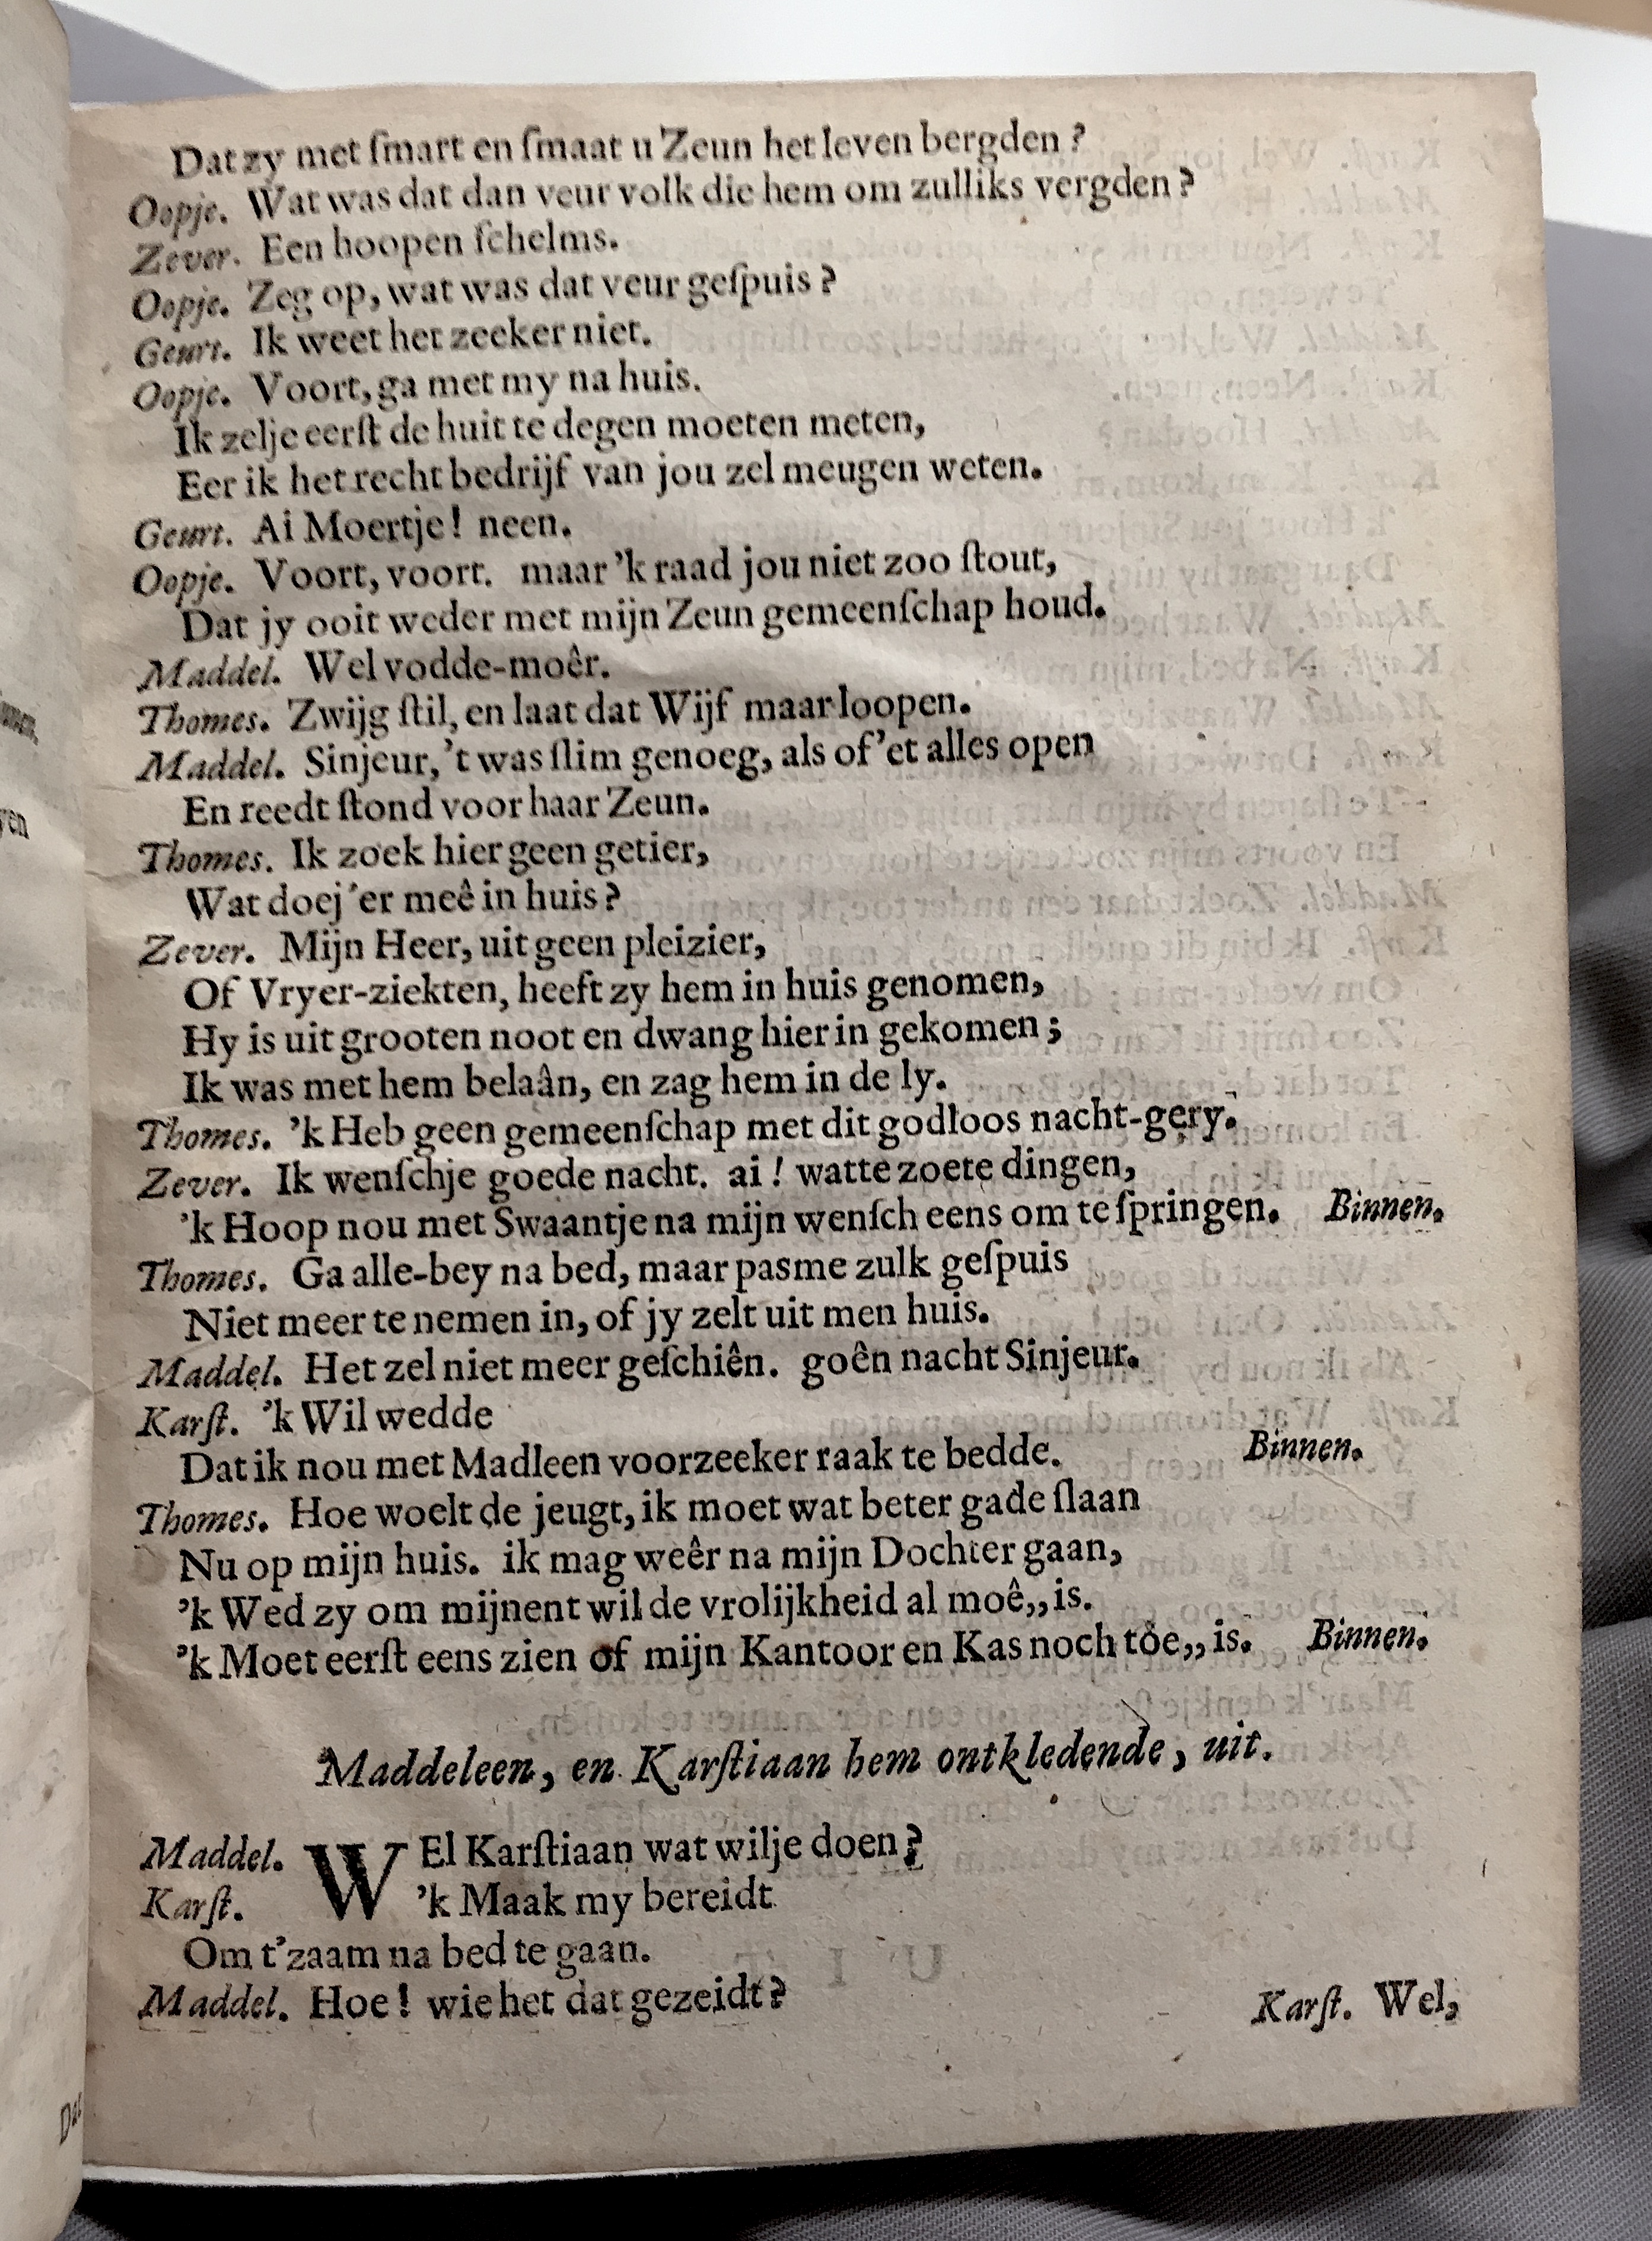 Dat zy met ſmart en ſmaat u Zeun het leven bergden?
Oopje. Wat was dat dan veur volk die hem om zulliks vergden?
Zever. Een hoopen ſchelms.
Oopje. Zeg op, wat was dat veur geſpuis?
Geurt. Ik weet het zeeker niet.
Oopje. Voort, ga met my na huis.
Ik zelje eerſt de huit te degen moeten meten,
Eer ik het recht bedrijf van jou zel meugen weten.
Geurt. Ai Moertje! neen.
Oopje. Voort, voort. maar 'k raad jou niet zoo ſtout,
Dat jy ooit weder met mijn Zeun gemeenſchap houd.
Maddel. Wel vodde-moêr.
Thomes. Zwijg ſtil, en laat dat Wijf maar loopen.
Maddel. Sinjeur, 't was ſlim genoeg, als of 'et alles open
En reedt ſtond voor haar Zeun.
Thomes. Ik zoek hier geen getier,
Wat doej 'er meê in huis?
Zever. Mijn Heer, uit geen pleizier,
Of Vryer-ziekten, heeft zy hem in huis genomen,
Hy is uit grooten noot en dwang hier in gekomen;
Ik was met hem belaân, en zag hem in de ly.
Thomes. 'k Heb geen gemeenſchap met dit godloos nacht-gery.
Zever. Ik wenſchje goede nacht. ai! watte zoete dingen,
'k Hoop nou met Swaantje na mijn wenſch eens om te ſpringen. Binnen.
Thomes. Ga alle-bey na bed, maar pasme zulk geſpuis
Niet meer te nemen in, of jy zelt uit men huis.
Maddel. Het zel niet meer geſchiên. goên nacht Sinjeur.
Karſt. 'k Wil wedde
Dat ik nou met Madleen voorzeeker raak te bedde. Binnen.
Thomes. Hoe woelt de jeugt, ik moet wat beter gade ſlaan
Nu op mijn huis. ik mag weêr na mijn Dochter gaan,
'k Wed zy om mijnent wil de vrolijkheid al moê,, is.
'k Moet eerſt eens zien of mijn Kantoor en Kas noch tôe,, is. Binnen.
Maddeleen, en Karſtiaan hem ontkledende, uit.
Maddel. WEl Karſtiaan wat wilje doen?
Karſt. 'k Maak my bereidt
Om t'zaam na bed te gaan.
Maddel. Hoe! wie het dat gezeidt?
Karſt. Wel,